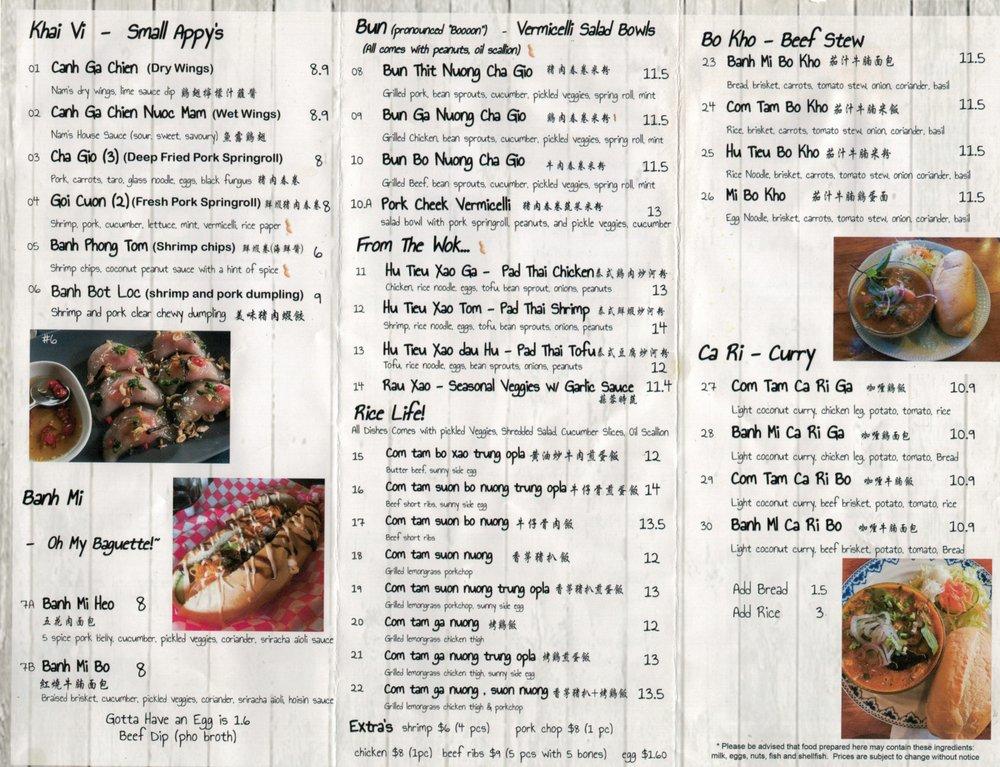 Khai Vi - Small Appy's
01 Canh Ga Chien (Dry Wings) 8.9
Nam's dry wings, lime sauce dip 鷄翅檸檬汁蘸醬
02 Canh Ga Chien Nuoc Mam (Wet Wings) 8.9
Nam's House Sauce (sour, sweet, savoury) 魚露鷄翅
03 Cha Gio (3) (Deep Fried Pork Springroll) 8
Pork, carrots, taro, glass noodle, eggs, black fungus 豬肉春卷
04 Goi Cuon (2) (Fresh Pork Springroll) 鮮蝦豬肉春卷 8
Shrimp, pork, cucumber, lettuce, mint, vermicelli, rice paper
05 Banh Phong Tom (Shrimp chips) 鮮蝦卷(海鮮醬) 6
Shrimp chips, coconut peanut sauce with a hint of spice
06 Banh Bot Loc (shrimp and pork dumpling) 9
Shrimp and pork clear chewy dumpling 美味豬肉蝦餃
#6
Banh Mi
- Oh My Baguette!~
7A Banh Mi Heo 8
五花肉面包
5 spice pork belly, cucumber, pickled veggies, coriander, sriracha aioli sauce
7B Banh Mi Bo 8
紅燒牛腩面包
Braised brisket, cucumber, pickled veggies, coriander, sriracha aioli, hoisin sauce
Gotta Have an Egg is 1.6
Beef Dip (pho broth)
Bun (pronounced "Boooon") - Vermicelli Salad Bowls
(All comes with peanuts, oil scallion)
08 Bun Thit Nuong Cha Gio 豬肉春卷米粉 11.5
Grilled pork, bean sprouts, cucumber, pickled veggies, spring roll, mint
09 Bun Ga Nuong Cha Gio 鷄肉春卷米粉 11.5
Grilled Chicken, bean sprouts, cucumber, pickled veggies, spring roll, mint
10 Bun Bo Nuong Cha Gio 牛肉春卷米粉 11.5
Grilled Beef, bean sprouts, cucumber, pickled veggies, spring roll, mint
10.A Pork Cheek Vermicelli 豬肉春卷蔬菜米粉 13
salad bowl with pork springroll, peanuts, and pickle veggies, cucumber
From The Wok...
11 Hu Tieu Xao Ga - Pad Thai Chicken 泰式鷄肉炒河粉
Chicken, rice noodle, eggs, tofu, bean sprout, onions, peanuts 13
12 Hu Tieu Xao Tom - Pad Thai Shrimp 泰式鮮蝦炒河粉
Shrimp, rice noodle, eggs, tofu, bean sprouts, onions, peanuts 14
13 Hu Tieu Xao dau Hu - Pad Thai Tofu 泰式豆腐炒河粉
Tofu, rice noodle, eggs, bean sprouts, onions, peanuts 12
14 Rau Xao - Seasonal Veggies w/ Garlic Sauce 11.4
蒜蓉時蔬
Rice Life!
All Dishes Comes with pickled Veggies, Shredded Salad, Cucumber Slices, Oil Scallion
15 Com tam bo xao trung opla 黃油炒牛肉煎蛋飯 12
Butter beef, sunny side egg
16 Com tam suon bo nuong trung opla 牛仔骨煎蛋飯 14
Beef short ribs, sunny side egg
17 Com tam suon bo nuong 牛仔骨肉飯 13.5
Beef short ribs
18 Com tam suon nuong 香茅豬扒飯 12
Grilled lemongrass porkchop
19 Com tam suon nuong trung opla 香茅豬扒煎蛋飯 13
Grilled lemongrass porkchop, sunny side egg
20 Com tam ga nuong 烤鷄飯 12
Grilled lemongrass chicken thigh
21 Com tam ga nuong trung opla 烤鷄煎蛋飯 13
Grilled lemongrass chicken thigh, sunny side egg
22 Com tam ga nuong , suon nuong 香茅豬扒+烤鷄飯 13.5
Grilled lemongrass chicken thigh & porkchop
Extra's shrimp $6 (4 pcs) pork chop $8 (1 pc)
chicken $8 (1pc) beef ribs $9 (5 pcs with 5 bones) egg $1.60
Bo Kho - Beef Stew
23 Banh Mi Bo Kho 茄汁牛腩面包 11.5
Bread, brisket, carrots, tomato stew, onion, coriander, basil
24 Com Tam Bo Kho 茄汁牛腩米飯 11.5
Rice, brisket, carrots, tomato stew, onion, coriander, basil
25 Hu Tieu Bo Kho 茄汁牛腩米粉 11.5
Rice Noodle, brisket, carrots, tomato stew, onion coriander, basil
26 Mi Bo Kho 茄汁牛腩鷄蛋面 11.5
Egg Noodle, brisket, carrots, tomato stew, onion, coriander, basil
Ca Ri - Curry
27 Com Tam Ca Ri Ga 咖喱鷄飯 10.9
Light coconut curry, chicken leg, potato, tomato, rice
28 Banh Mi Ca Ri Ga 咖喱鷄面包 10.9
Light coconut curry, chicken leg, potato, tomato, Bread
29 Com Tam Ca Ri Bo 咖喱牛腩飯 10.9
Light coconut curry, beef brisket, potato, tomato, rice
30 Banh MI Ca Ri Bo 咖喱牛腩面包 10.9
Light coconut curry, beef brisket, potato, tomato, Bread
Add Bread 1.5
Add Rice 3
* Please be advised that food prepared here may contain these ingredients:
milk, eggs, nuts, fish and shellfish. Prices are subject to change without notice